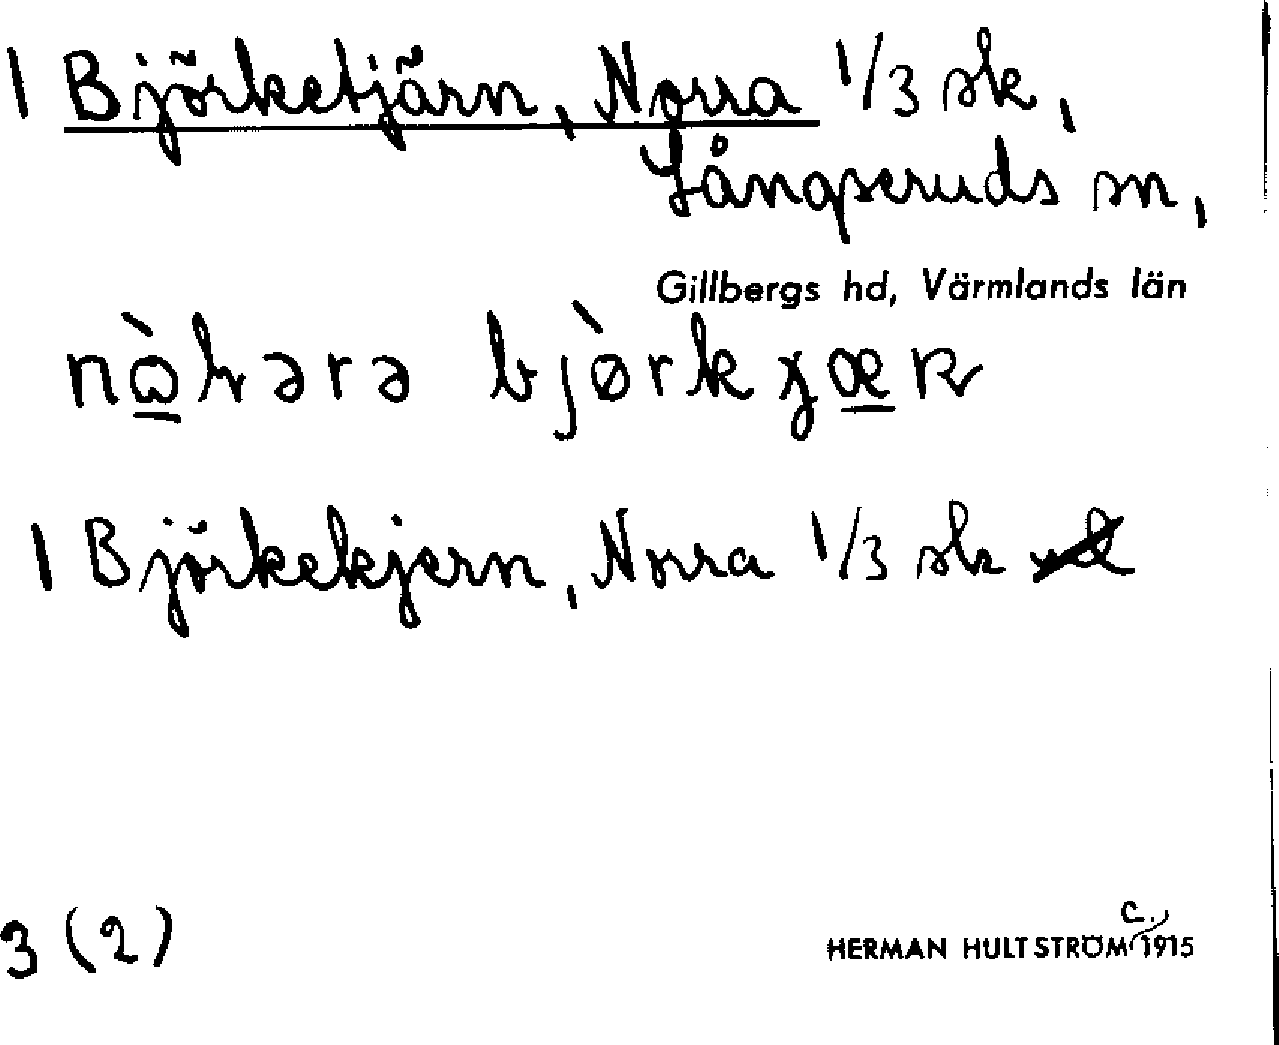 1 Björketjärn, Norra 1/3 sk,
Långseruds sn,
Gillbergs hd, Värmlands län
bjørk
1 Björkekjern, Norra 1/3 sk
3 (2)
HERMAN HULTSTRÖM c. 1915